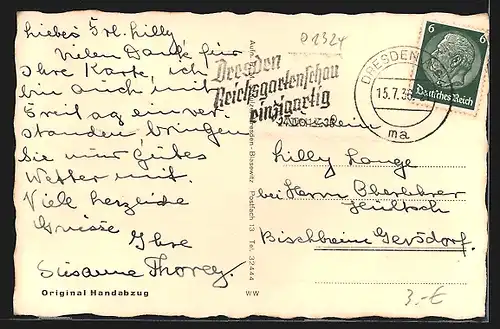 Liebes Frl. Lilly
Vielen Dank für
Ihre Karte, ich
bin auch mit
Freitag einver-
standen bringen
Sie nur gutes
Wetter mit.
Viele herzliche
Grüsse Ihre
Susanne Thorey.
Original Handabzug
Dresden-Blasewitz Postfach 13 Tel. 32444
WW
D1324
Dresden
Reichsgartenschau
einzigartig
DRESDEN
15.7.36
ma
6 6
Deutsches Reich
Lilly Lange
bei Herrn Oberlehrer
Jeultsch
Bischheim Gersdorf.
3.-€